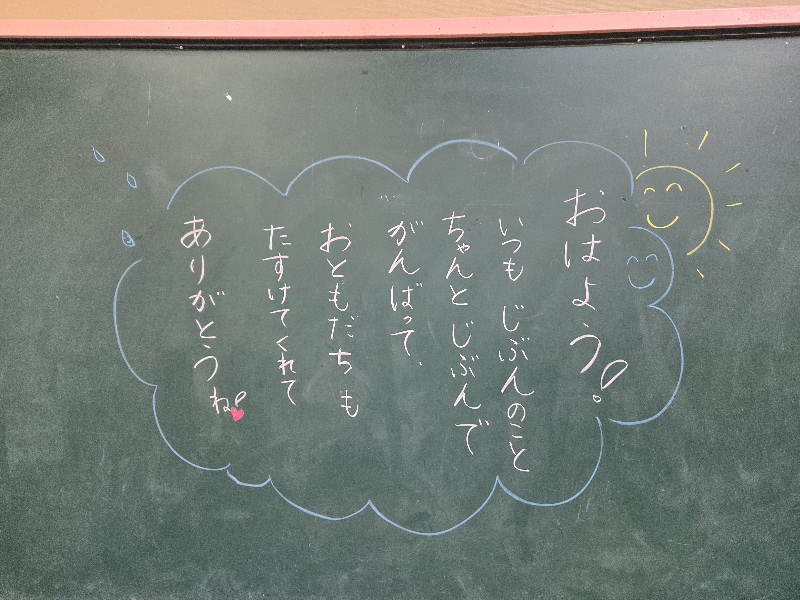 おはよう!
いつも じぶんのこと
ちゃんと じぶんで
がんばって、
おともだちも
たすけてくれて
ありがとうね!